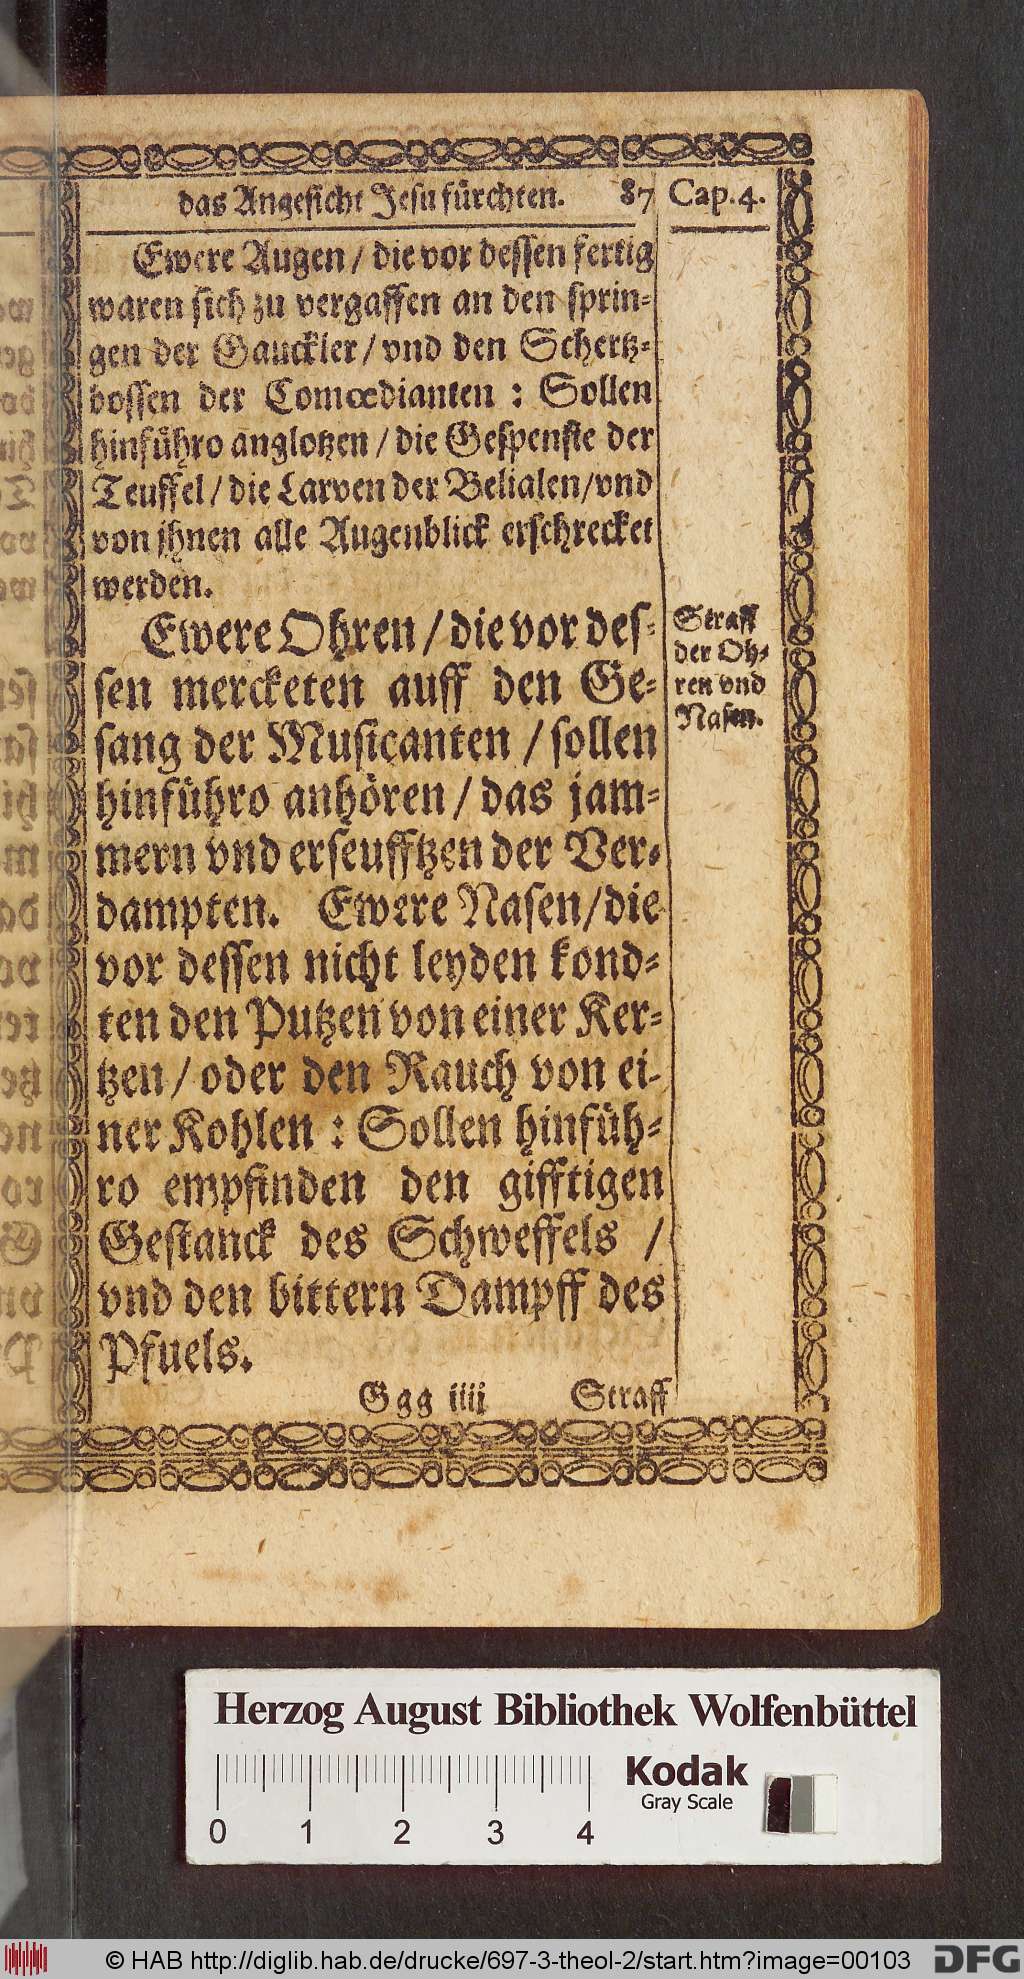 das Angesicht Jesu fürchten. 87 Cap. 4.
Ewere Augen / die vor dessen fertig
waren sich zu vergaffen an den sprin-
gen der Gauckler / vnd den Schertz-
bossen der Comœdianten : Sollen
hinführo anglotzen / die Gespenste der
Teuffel / die Larven der Belialen / vnd
von jhnen alle Augenblick erschrecket
werden.
Ewere Ohren / die vor des-
sen mercketen auff den Ge-
sang der Musicanten / sollen
hinführo anhören / das jam-
mern vnd erseufftzen der Ver-
dampten. Ewere Nasen / die
vor dessen nicht leyden kond-
ten den Putzen von einer Ker-
tzen / oder den Rauch von ei-
ner Kohlen : Sollen hinfüh-
ro empfinden den gifftigen
Gestanck des Schweffels /
vnd den bittern Dampff des
Pfuels.
Straff
der Oh-
ren vnd
Nasen.
Ggg iiii Straff
Herzog August Bibliothek Wolfenbüttel
Kodak
Gray Scale
0 1 2 3 4
© HAB http://diglib.hab.de/drucke/697-3-theol-2/start.htm?image=00103 DFG